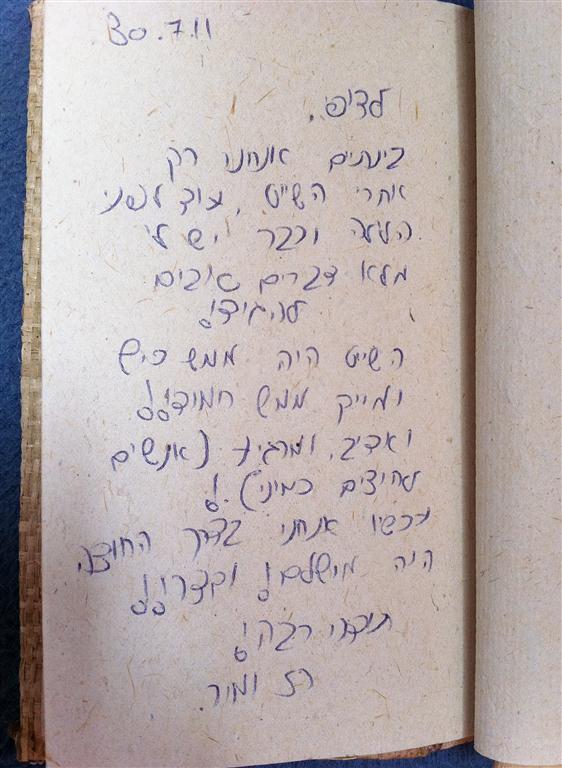 30.7.11
לדיפי,
בינתים אנחנו רק
אחרי השייט, עוד לפני
הלילה וכבר יש לי
מלא דברים טובים
להגיד!
השייט היה ממש כיף
ומייק ממש חמוד!!
ואדיב, ומרגיע (אנשים
לחיצים כמיני).!
עכשו אנחנו בדרך החוצה
היה מושלם! וקצר!!
תודה רבה!
רז ומיר.